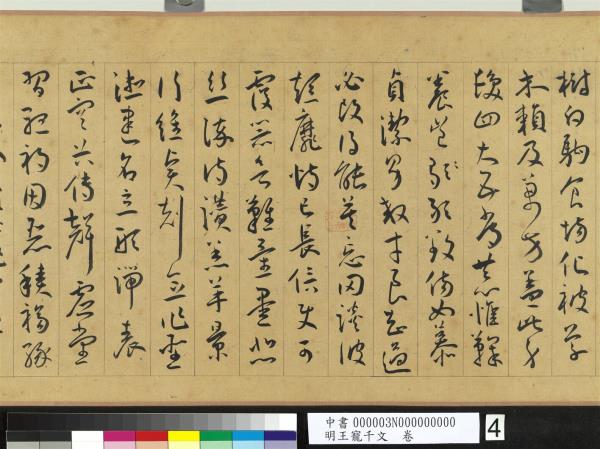 樹白駒食場化被草
木賴及萬方蓋此身
髮四大五常恭惟鞠
養豈敢毀傷女慕
貞潔男效才良知過
必改得能莫忘罔談彼
短靡恃己長信使可
覆器欲難量墨悲
絲染詩讚羔羊景
行維賢剋念作聖
德建名立形端表
正空谷傳聲虛堂
習聽禍因惡積福緣
中書 000003N000000000
明王寵千文 卷
4